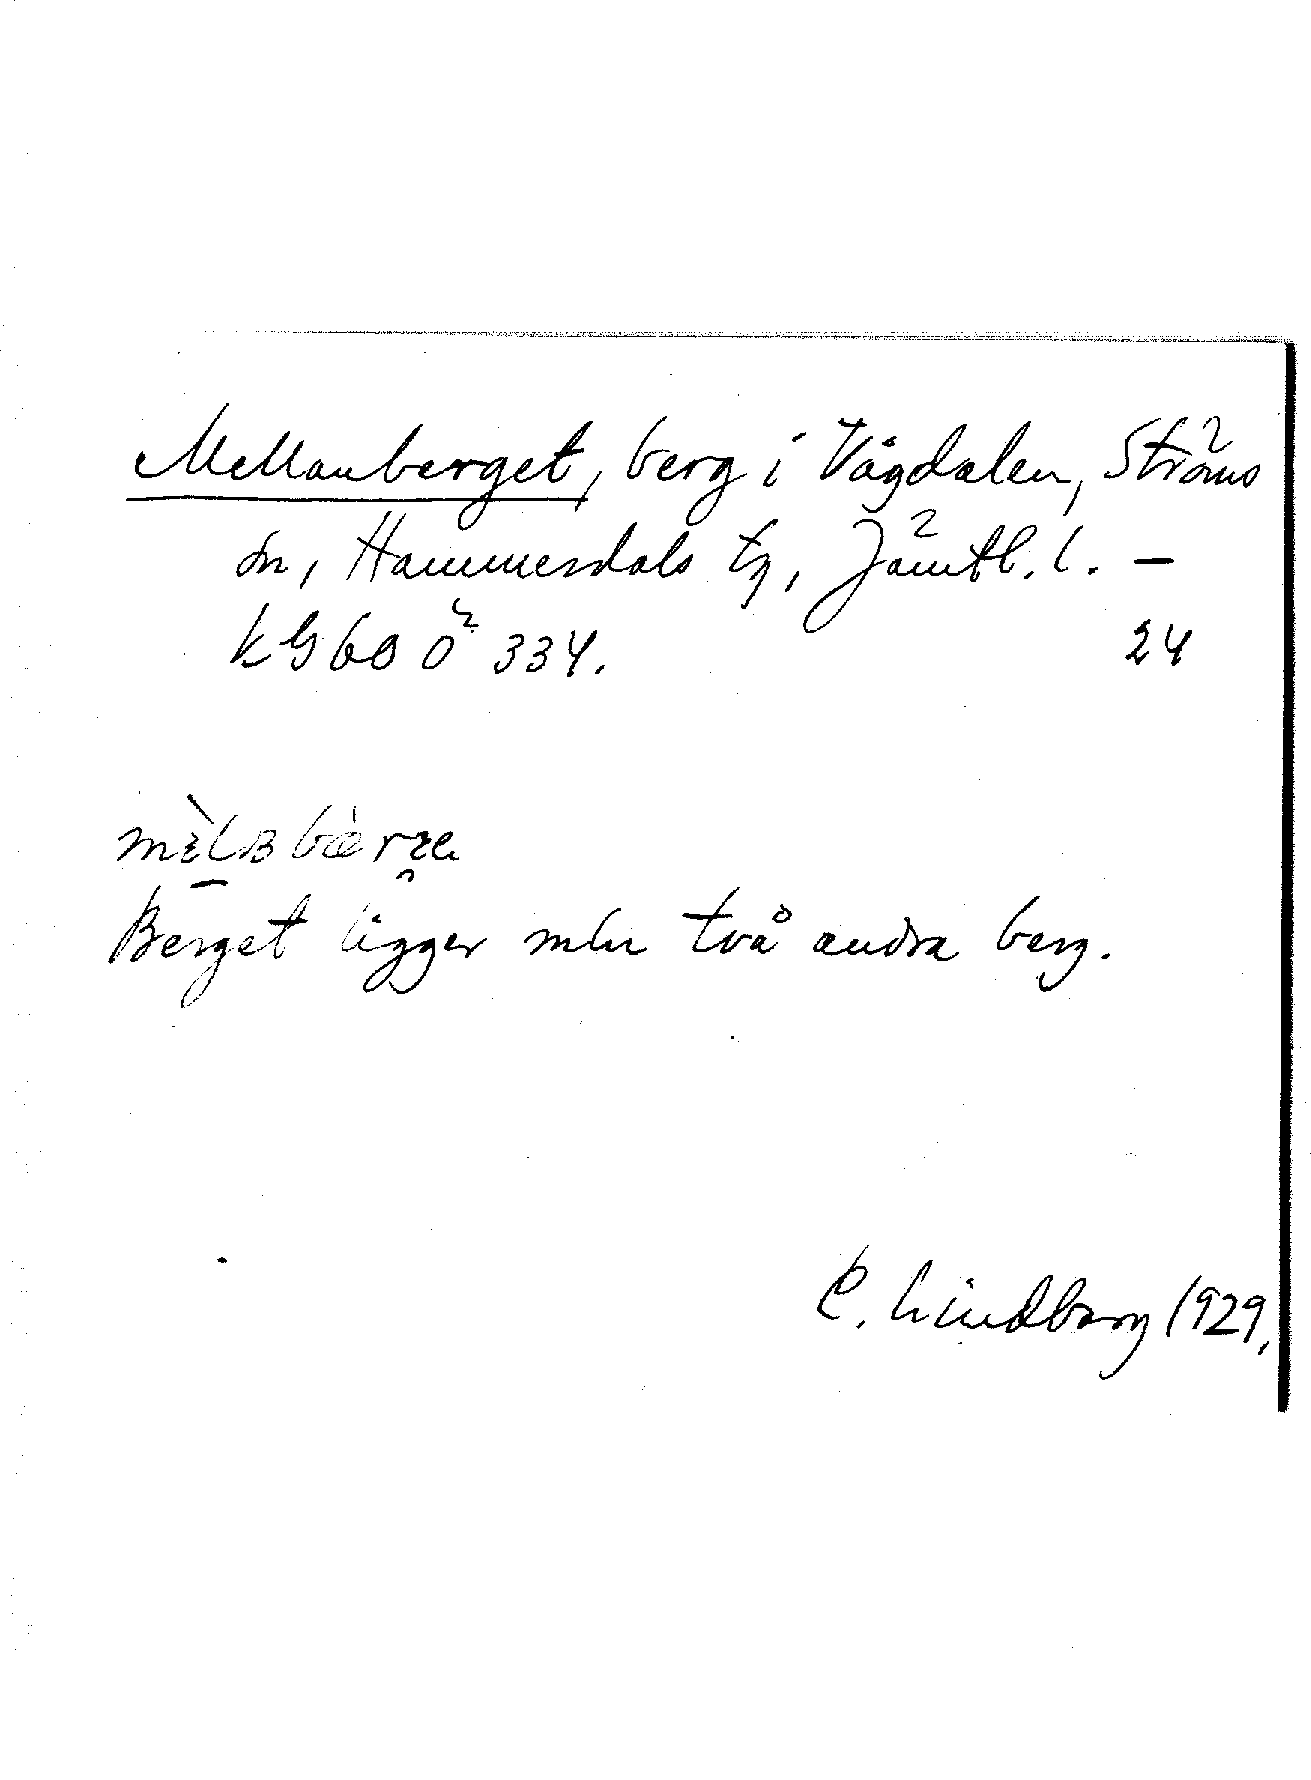 Mellanberget, berg i Vågdalen, Ströms
sn, Hammerdals tg, Jämtl. l. —
kG 60 Ö 334. 24
Berget ligger mln två andra berg.
C. Lindberg 1929.